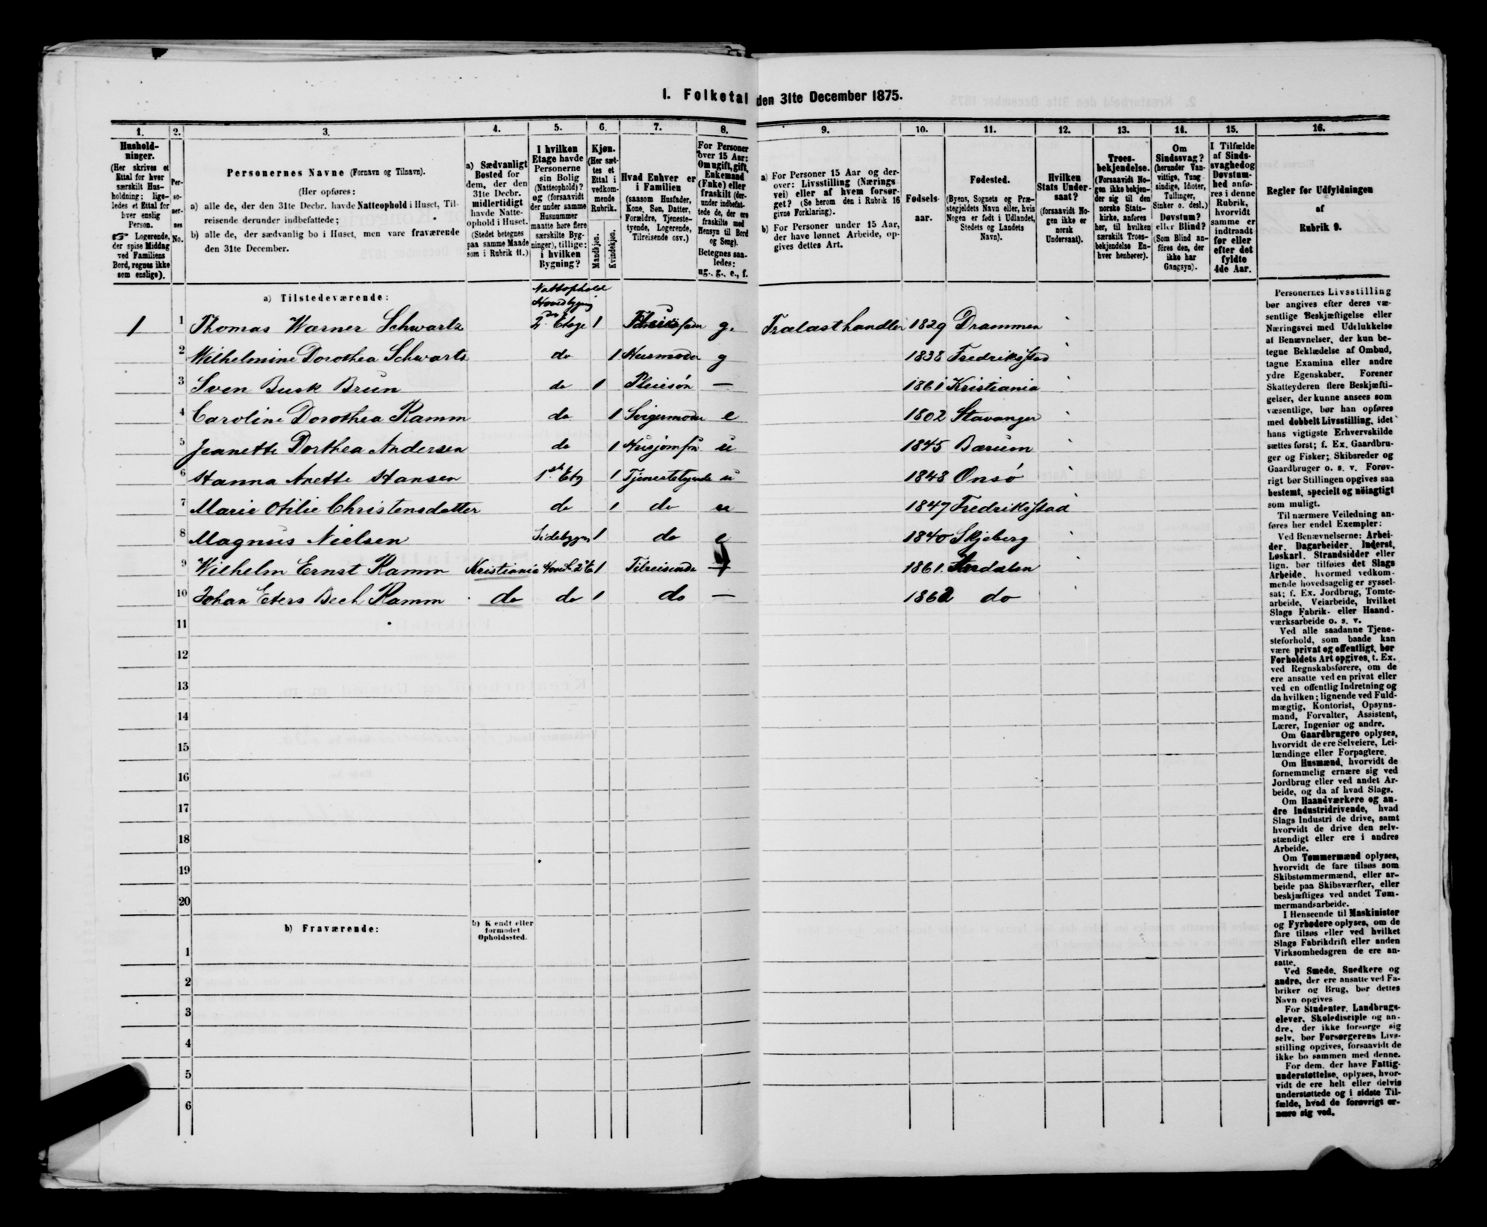 I. Folketal den 31te December 1875.
1. 2. 3. 4. 5. 6. 7. 8. 9. 10. 11. 12. 13. 14. 15. 16.
Hushold-
ninger.
(Her skrives et
Ettal for hver
særskilt Hus-
holdning; lige-
ledes et Ettal for
hver enslig
Person.
☞ Logerende,
der spise Middag
ved Familiens
Bord, regnes ikke
som enslige).
Per-
so-
ner-
nes
No.
Personernes Navne (Fornavn og Tilnavn).
(Her opføres:
a) alle de, der den 31te Decbr. havde Natteophold i Huset, Til-
reisende derunder indbefattede;
b) alle de, der sædvanlig bo i Huset, men vare fraværende
den 31te December.
a) Sædvanligt
Bosted for
dem, der den
31te Decbr.
midlertidigt
havde Natte-
ophold i Huset.
(Stedet betegnes
paa samme Maade
som i Rubrik 11.)
I hvilken
Etage havde
Personerne
sin Bolig
(Natteophold)?
og (forsaavidt
der under samme
Husnummer
maatte høre flere
særskilte Byg-
ninger), tillige:
i hvilken
Bygning?
Kjøn.
(Her sæt-
tes et
Ettal i
vedkom-
mende
Rubrik.
Mandkjøn.
Kvindekjøn.
Hvad Enhver er
i Familien
(saasom Husfader,
Kone, Søn, Datter,
Forældre, Tjeneste-
tyende, Logerende,
Tilreisende osv.)
For Personer
over 15 Aar:
Om ugift, gift,
Enkemand
(Enke) eller
fraskilt (der-
under indbefat-
tede de, der ere
fraskilte med
Hensyn til Bord
og Seng).
Betegnes saa-
ledes:
ug., g., e., f.
a) For Personer 15 Aar og der-
over: Livsstilling (Nærings
vei) eller af hvem forsør-
get? (Se herom den i Rubrik 16
givne Forklaring).
b) For Personer under 15 Aar,
der have lønnet Arbeide, op-
gives dettes Art.
Fødsels-
aar.
Fødested.
(Byens, Sognets og Præ-
stegjeldets Navn eller, hvis
Nogen er født i Udlandet,
Stedets og Landets
Navn).
Hvilken
Stats Under-
saat?
(forsaavidt No-
gen ikke er
norsk
Undersaat).
Troes-
bekjendelse.
(Forsaavidt No-
gen ikke bekjen-
der sig til den
norske Stats-
kirke, anføres
her, til hvilken
særskilt Troes-
bekjendelse En-
hver henhører).
Om
Sindssvag?
(herunder Van-
vittige, Tung
sindige, Idioter,
Tullinger,
Sinker o. desl.)
Døvstum?
eller Blind?
(Som Blind an-
føres den, der
ikke har
Gangsyn).
I Tilfælde
af Sinds-
svaghed og
Døvstum-
hed anfø-
res i denne
Rubrik,
hvorvidt
samme er
indtraadt
før eller
efter det
fyldte
4de Aar.
Regler for Udfyldningen
af
Rubrik 9.
a) Tilstedeværende:
Natteophold
Hovedbygning
1 1 Thomas Warner Schwartz 2den Etage 1 Huusfader g. Trælasthandler 1829 Drammen
2 Wilhelmine Dorothea Schwartz do 1 Husmoder g 1838 Fredrikstad
3 Sven Busk Brun do 1 Pleiesøn — 1861 Kristiania
4 Caroline Dorothea Ramm do 1 Svigermoder e 1802 Stavanger
5 Jeanette Dorthea Andersen do 1 Husjomfru u 1845 Bærum
6 Hanna Anette Hansen 1ste Etg 1 Tjenestetyende u 1848 Onsø
7 Marie Otilie Christensdatter do 1 do u 1847 Fredrikstad
8 Magnus Nielsen Sidebygn 1 do e 1840 Skjeberg
9 Wilhelm Ernst Ramm Kristiania Hoved. 2 E 1 Tilreisende 1861. Værdalen
10 Johan Eters Bech Ramm do do 1 do — 1862 do
11
12
13
14
15
16
17
18
19
20
b) Fraværende:
b) Kjendt eller
formodet
Opholdssted.
1
2
3
4
5
6
Personernes Livsstilling
bør angives efter deres væ-
sentlige Beskjæftigelse eller
Næringsvei med Udelukkelse
af Benævnelser, der kun be-
tegne Beklædelse af Ombud,
tagne Examina eller andre
ydre Egenskaber. Forener
Skatteyderen flere Beskjæfti-
gelser, der kunne ansees som
væsentlige, bør han opføres
med dobbelt Livsstilling, idet
hans vigtigste Erhvervskilde
sættes først; f. Ex. Gaardbru-
ger og Fisker; Skibsreder og
Gaardbruger o. s. v. Forøv-
rigt bør Stillingen opgives saa
bestemt, specielt og nöiagtigt
som muligt.
Til nærmere Veiledning an-
føres her endel Exempler:
Ved Benævnelserne: Arbei-
der, Dagarbeider, Inderst,
Løskarl, Strandsidder eller
lign. bør tilføies det Slags
Arbeide, hvormed vedkom-
mende hovedsagelig er syssel-
sat; f. Ex. Jordbrug, Tomte-
arbeide, Veiarbeide, hvilket
Slags Fabrik- eller Haand-
værksarbeide o. s. v.
Ved alle saadanne Tjene-
steforhold, som baade kan
være privat og offentligt, bør
Forholdets Art opgives, t. Ex.
ved Regnskabsførere, om de
ere ansatte ved en privat eller
ved en offentlig Indretning og
da hvilken; lignende ved Fuld-
mægtig, Kontorist, Opsyns-
mand, Forvalter, Assistent,
Lærer, Ingeniør og andre.
Om Gaardbrugere oplyses,
hvorvidt de ere Selveiere, Lei-
lændinge eller Forpagtere.
Om Husmænd, hvorvidt de
fornemmelig ernære sig ved
Jordbrug eller ved andet Ar-
beide, og da af hvad Slags.
Om Haandværkere og an-
dre Industridrivende, hvad
Slags Industri de drive, samt
hvorvidt de drive den selv-
stændigt eller ere i andres
Arbeide.
Om Tømmermænd oplyses,
hvorvidt de fare tilsøs som
Skibstømmermænd, eller ar-
beide paa Skibsværfter, eller
beskjæftiges ved andet Tøm-
mermandsarbeide.
I Henseende til Maskinister
og Fyrbødere oplyses, om de
fare tilsøs eller ved hvilket
Slags Fabrikdrift eller anden
Virksomhedsgren de ere an-
satte.
Ved Smede, Snedkere og
andre, der ere ansatte ved Fa-
briker og Brug, bør dettes
Navn opgives
For Studenter, Landbrugs-
elever, Skoledisciple og an-
dre, der ikke forsørge sig
selv, bør Forsørgerens Livs-
stilling opgives, forsaavidt de
ikke bo sammen med denne.
For dem, der have Fattig-
understøttelse, oplyses, hvor-
vidt de ere helt eller delvis
understøttede og i sidste Til-
fælde, hvad de forøvrigt er-
nære sig ved.